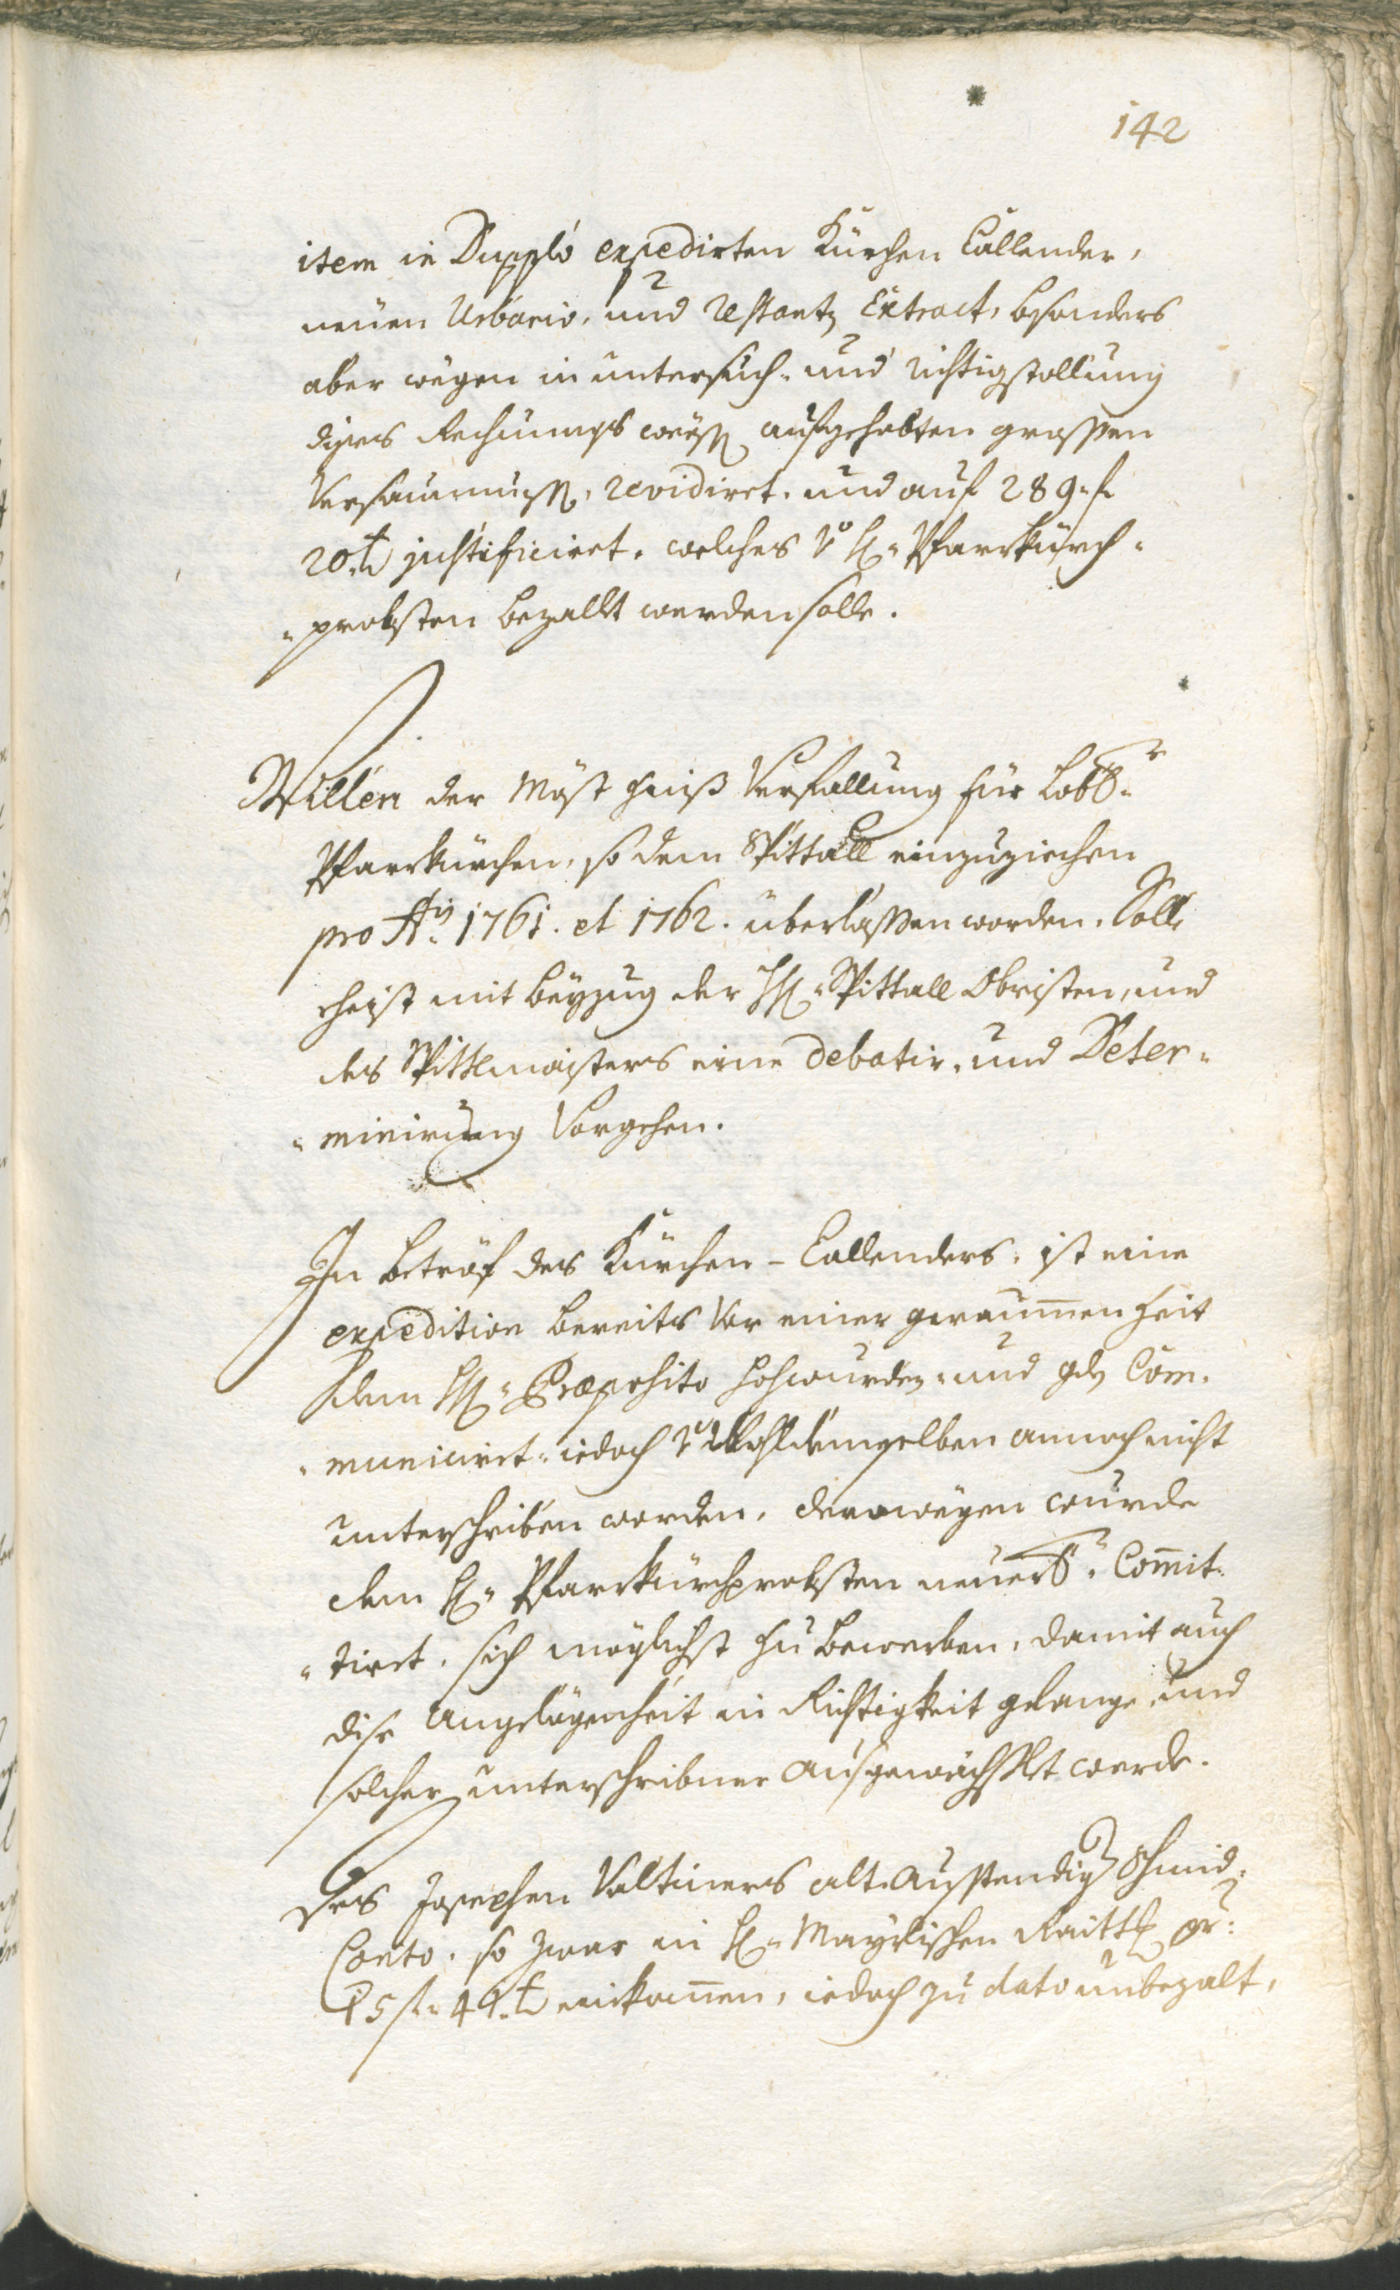 142
item in Dupplo expedirten Kürchen Callender,
neüen Urbario, und restantz Extract, bsonders
aber wegen in untersuch- und richtigstellung
dises Rechnungs weeßß aufgehebten grossen
Versaumnuß, revidiret, und auf 289. f.
20 x justificiret. welches v: H: Pfarrkürch-
-probsten bezallt werden solle.
Willen der Möst Zinß Verfallung für Lobl:r
Pfarrkürchen, so dem Spittall einzuziechen
pro Aij 1761. et 1762. überlassen worden. Soll
ehist mit beyzug der HH: Spittall Obristen, und
des Spittlmaisters eine debatir- und Deter-
-minirung Vorgehen.
In betröf des Kürchen-Callenders, ist eine
expedition bereits vor einer geraumen Zeit
dem HH: Præposito hochwürden, und gdn Com-
-municiret, iedoch v: Wohldemselben annoch nicht
unterschriben worden, derowegen wurde
dem H: Pfarrkürchprobsten neüerl:r Commit-
-tiret, sich möglichst zu bewerben, damit auch
dise Angelögenheit in Richtigkeit gelange und
solcher unterschribner ausgewechslet werde.
Des Josephen Valtiners alt-ausstendig Schmid-
Conto, so zwar in H: Mayrlischen Raittl pr:
15 f: 41 x einkommen, iedoch zu dato unbezalt,